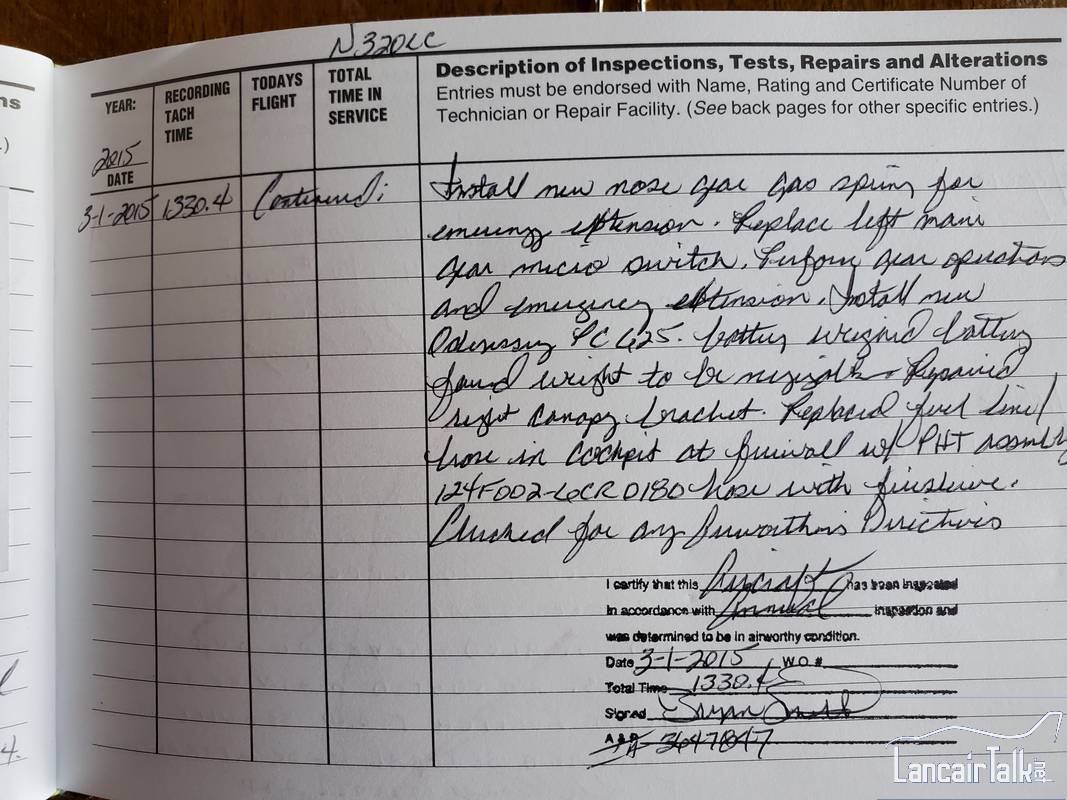 N320LC
YEAR:
2015
DATE
RECORDING
TACH
TIME
TODAYS
FLIGHT
TOTAL
TIME IN
SERVICE
Description of Inspections, Tests, Repairs and Alterations
Entries must be endorsed with Name, Rating and Certificate Number of
Technician or Repair Facility. (See back pages for other specific entries.)
3-1-2015 1330.4 Continued:
Install new nose gear gas spring for
extension. Replace left main
gear micro switch. Perform gear operations
and emergency extension. Install new
Odenssey PC 625. battery weighed battery
found weight to be. Repaired
right canopy bracket. Replaced fuel line/
hose in cockpit at firewall w/ PHT assembly
124F002-6CR0180 hose with firesleeve.
Checked for any Directives
I certify that this Aircraft has been inspected
in accordance with Annual inspection and
was determined to be in airworthy condition.
Date 3-1-2015 W.O #
Total Time 1330.4
Signed
A & P 3647847
ns
.)
4.
LancairTalk.net